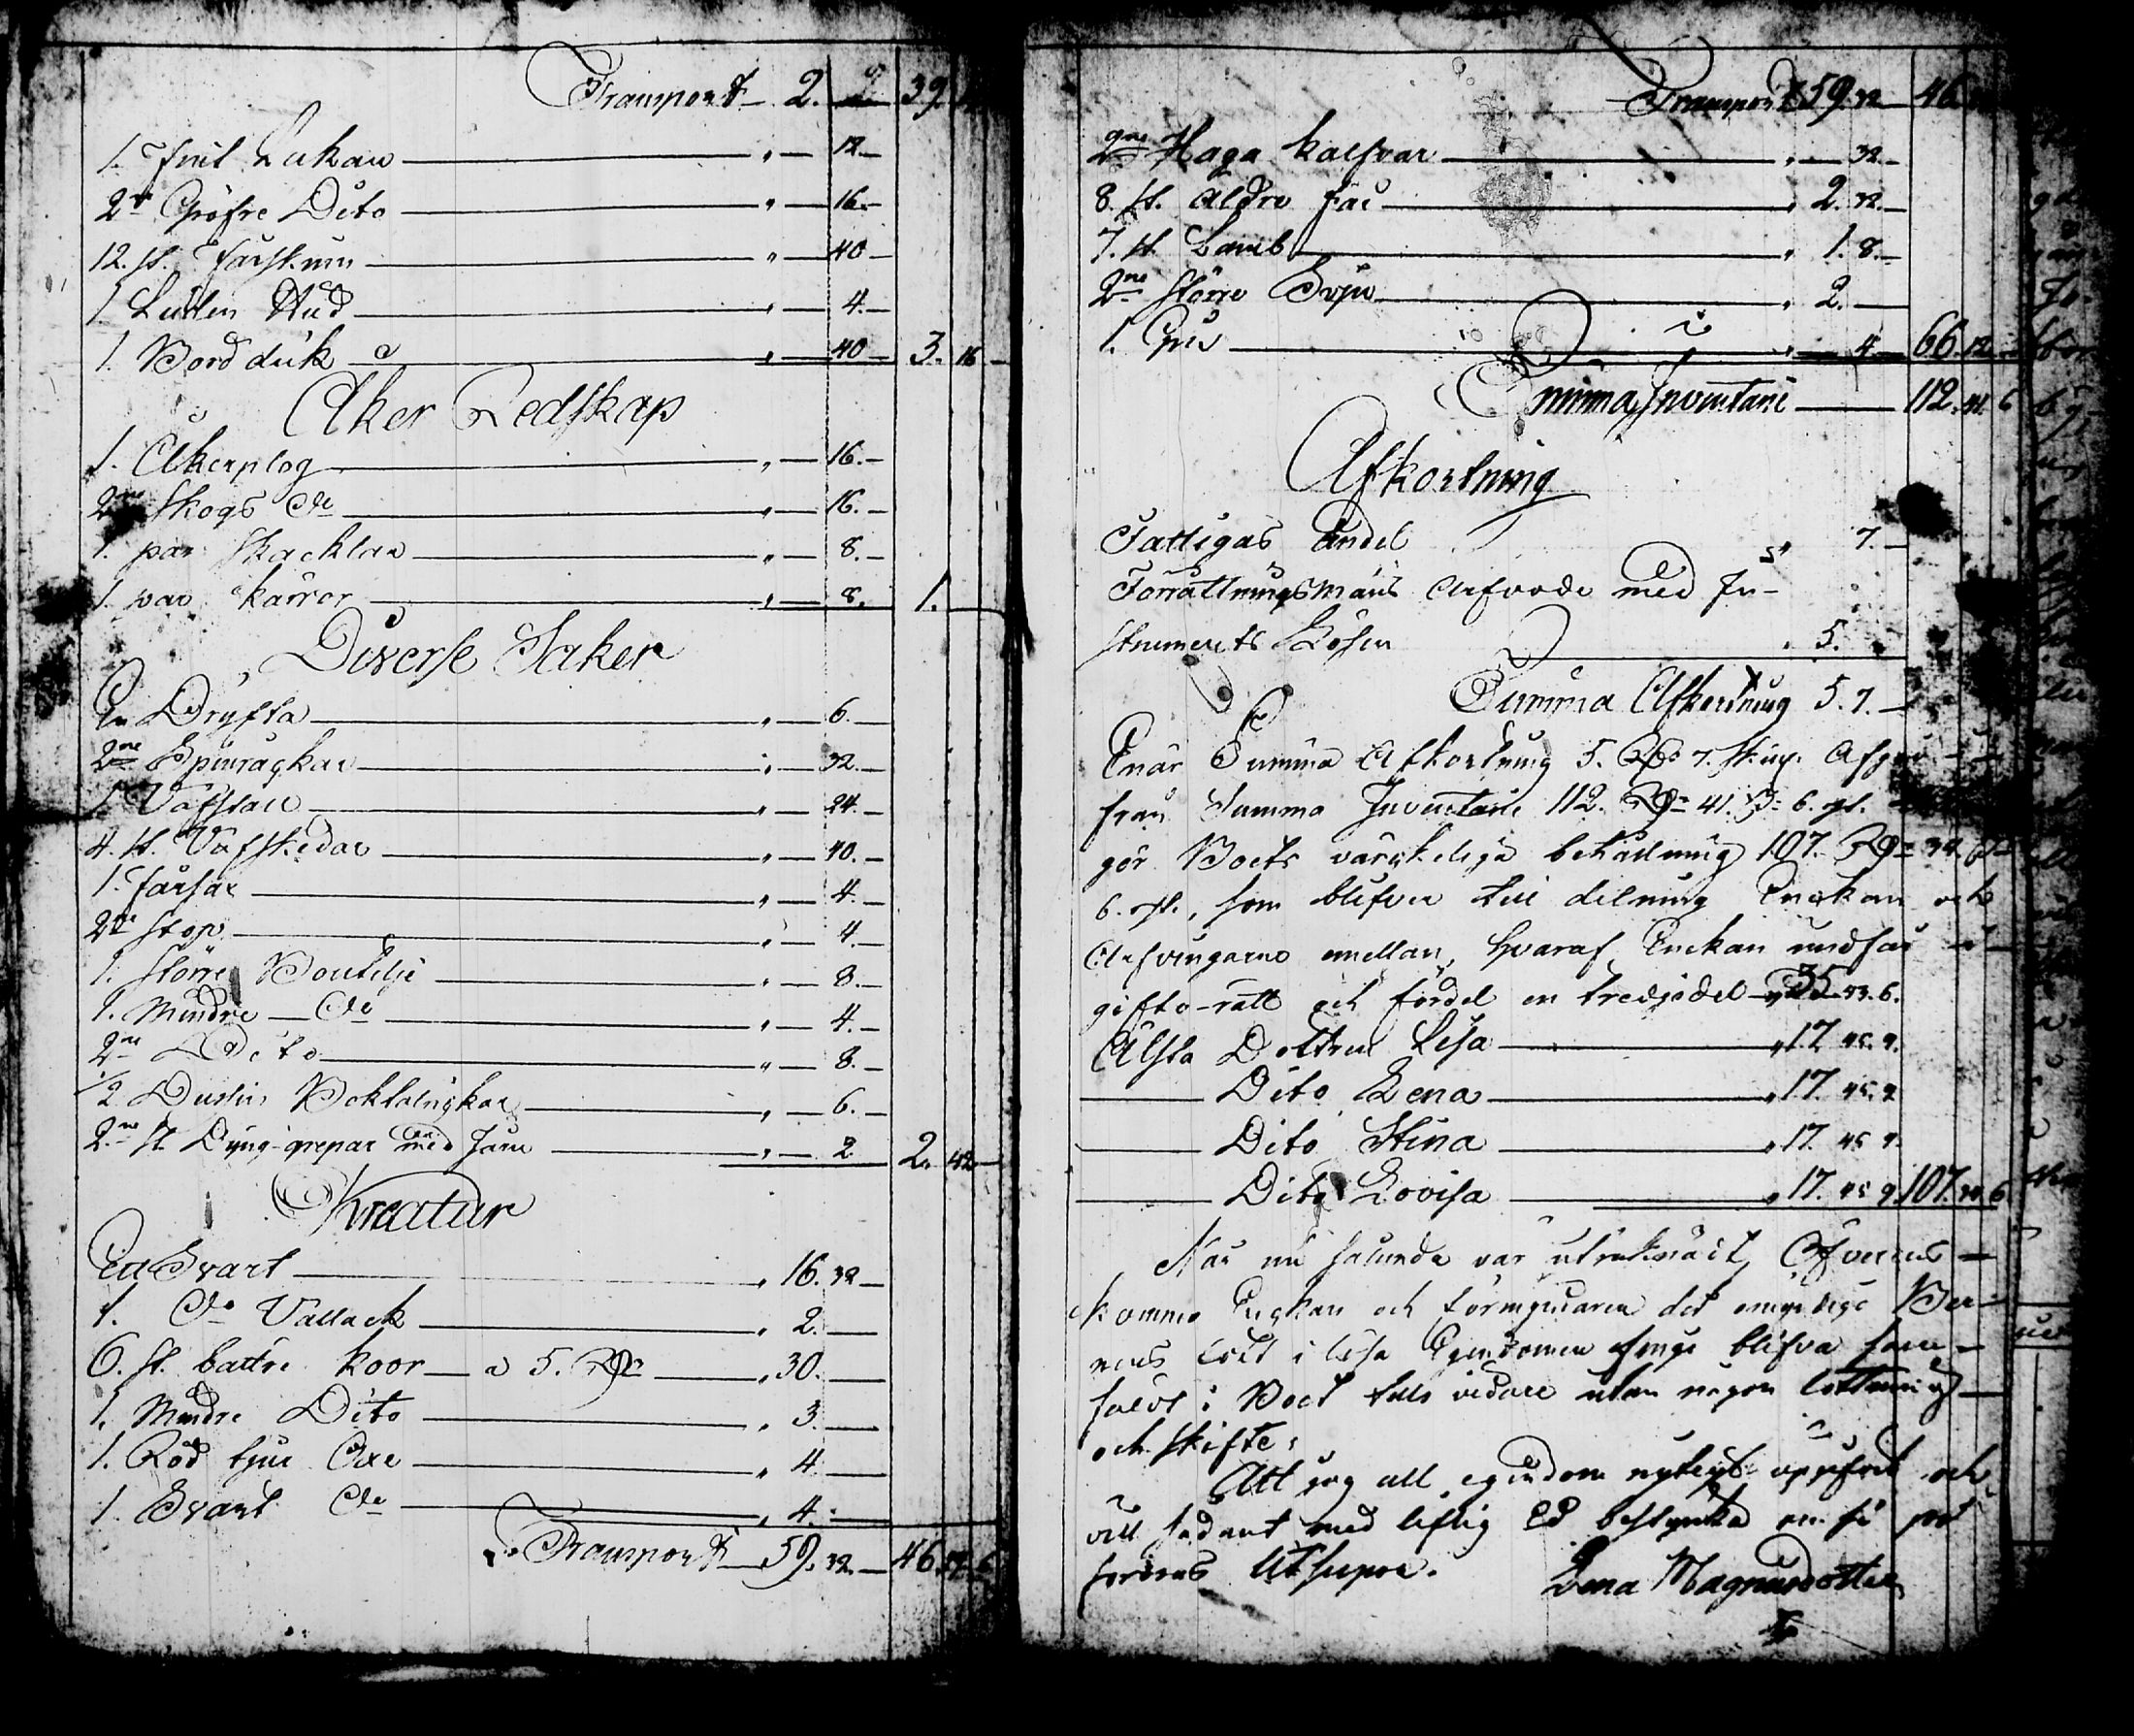 Transport 2. 39.
1. Fint Lakan " 12
2st Gröfre Dito " 16.
12. st. Fårskinn " 40
1 Luden Hud " 4.
1 Bord duk " 40 3. 16
Åker Redskap
1. Åkerplog " 16.
2ne Skogs do " 16.
1. par Skacklar " 8.
1. par Kärror " 8. 1.
Diverse Saker
En Dryfta " 6.
2ne Spinråckar " 32.
1. Väfställ " 24.
4. st. Väfskedar " 40.
1. Fårsax " 4.
2st Stop " 4.
1. Större Boutelje " 8.
1. Mindre do " 4.
2ne Dito " 8.
1/2 Dussin Boktalrickar " 6.
2ne st. Dyng-grepar med Järn " 2 2. 42
Kreatur
En Svart " 16. 32
1. do Vallack " 2.
6. st. bättre Koor a 5. Rd " 30.
1. Mindre Dito " 3.
1. Röd tjur Oxe " 4.
1 Svart do " 4.
Transport 59. 32. 46.
Transport 59. 32 46.
2ne Haga Kalfvar " 32.
8. st. äldre Får " 2. 32.
7. st. Lamb " 1. 8.
2ne större Svin " 2.
1. Gris " 4 66. 12
Summa Inventarii 112. 41. 6
Afkortning
Fattigas andel " 7.
Förrättningsmäns Arfvode med In-
strumentets Lösen " 5.
Summa Afkortning 5. 7.
Enär Summa Afkortning 5. Rd 7. sk.
från Summa Inventarii 112. Rd 41. s 6. rst.
gör Boets värckeliga behållning 107. Rd 34. s
6. rst., som blifver till delning Enckan och
Arfvingarne emellan, hvaraf Enckan undfår i
gifto-rätt och fördel en tredjedel 35 43. 6.
Älsta Dottren Lisa " 17 45. 9.
Dito Lena " 17. 45. 9
Dito Stina " 17. 45 9.
Dito Lovisa " 17. 45 9 107. 34. 6
När nu sålunda var uträknadt, Öfverens
kommo Enckan och förmyndaren det omyndige Bar-
nens lott i lösa Egendomen finge blifva
i Boet tills vidare utan någon lottning
och skifte.
Att jag all egendom uppgifvit och
vill sådant med liflig Ed bestyrcka om så på
fordras Utsupra. Lena Magnusdotter